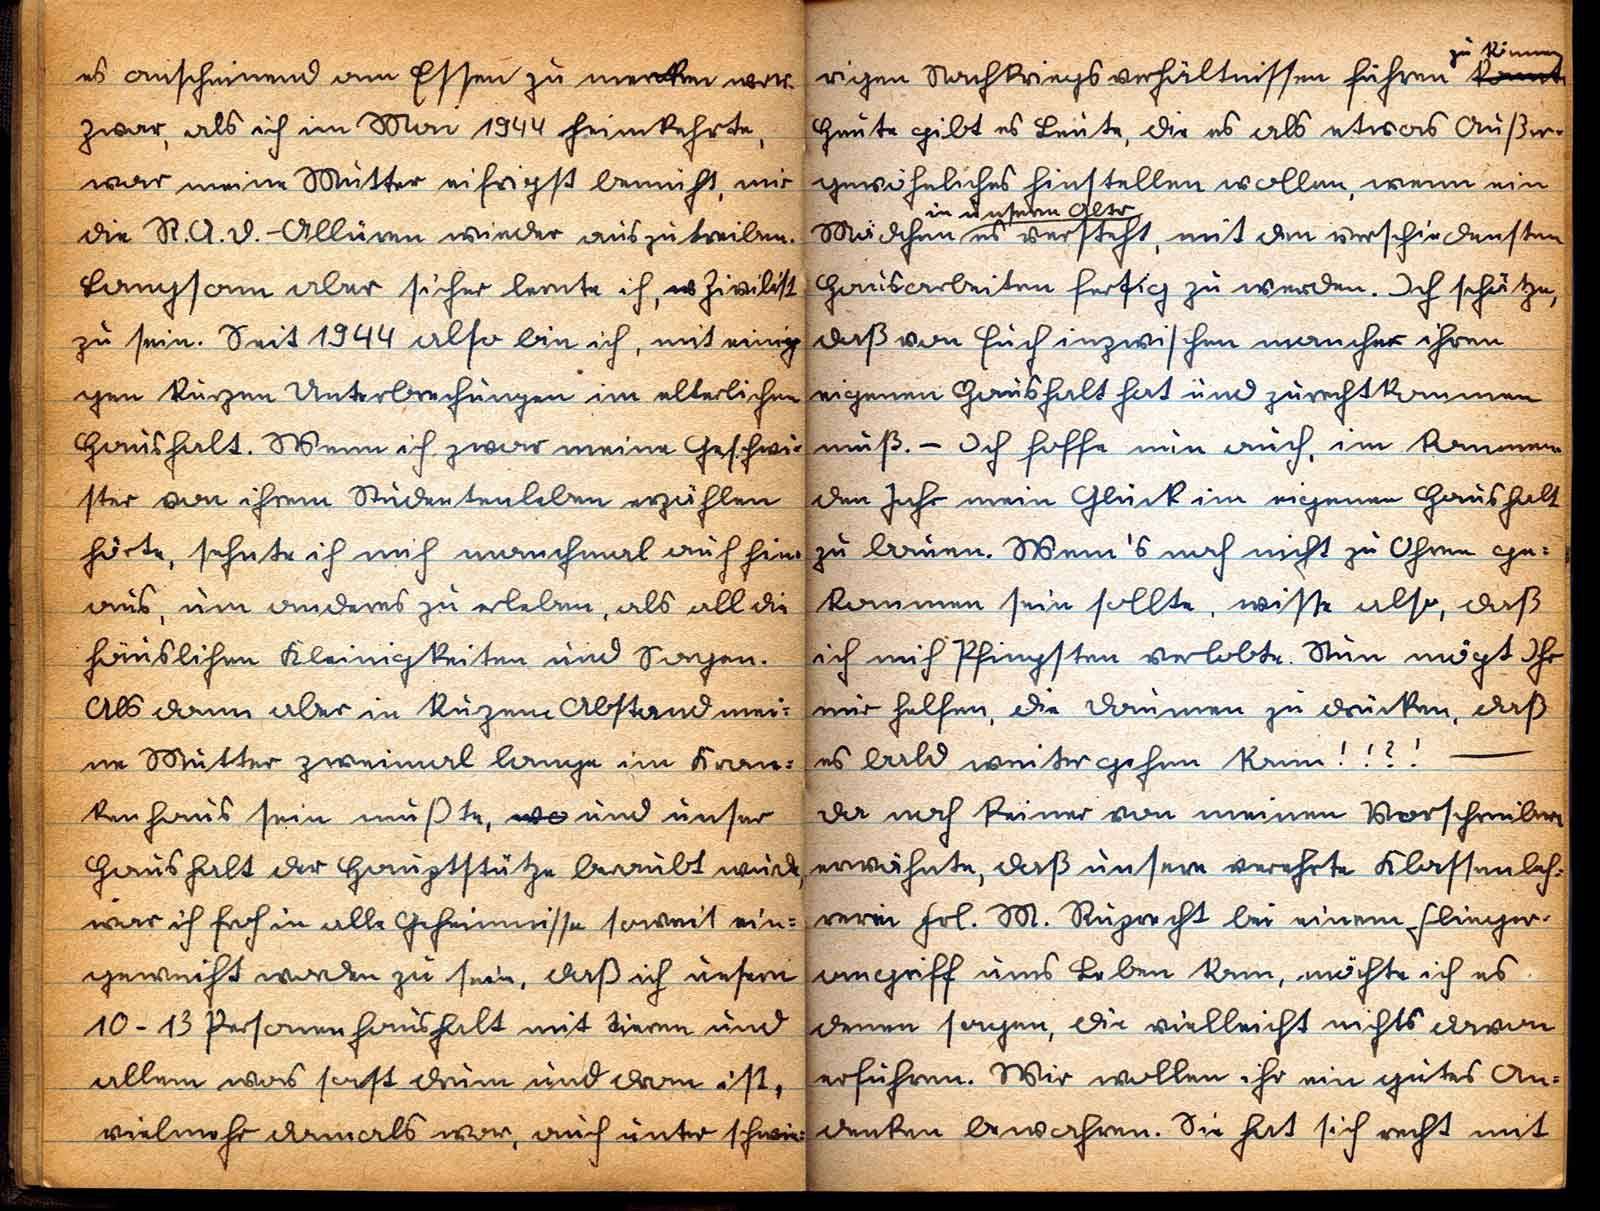 es anscheinend am Essen zu merken war.
zwar, als ich im Mai 1944 heimkehrte,
war meine Mutter eifrigst bemüht, mir
die R.A.D.-Allüren wieder auszutreiben.
Langsam aber sicher lernte ich, Zivilist
zu sein. Seit 1944 also bin ich, mit einig
gen kurzen Unterbrechungen im elterlichen
Haushalt. Wenn ich zwar meine Geschwi-
ster von ihrem Studentenleben erzählen
hörte, sehnte ich mich manchmal auch hin-
aus, um anderes zu erleben, als all die
häuslichen Kleinigkeiten und Sorgen.
Als dann aber in kurzem Abstand mei=
ne Mutter zweimal lange im Kran=
kenhaus sein mußte, wo und unser
Haushalt der Hauptstütze beraubt wurde,
war ich froh in alle Geheimnisse soweit ein=
geweiht worden zu sein, daß ich unsern
10-13 Personenhaushalt mit Tieren und
allem was sonst drum und dran ist,
vielmehr damals war, auch unter schwie=
zu können
rigen Nachkriegsverhältnissen führen konnte
Heute gibt es Leute, die es als etwas Außer-
gewöhnliches hinstellen wollen, wenn ein
in unserm Alter
Mädchen es versteht, mit den verschiedensten
Hausarbeiten fertig zu werden. Ich schätze,
daß von Euch inzwischen mancher ihren
eigenen Haushalt hat und zurechtkommen
muß. – Ich hoffe nun auch, im kommen-
den Jahr mein Glück im eigenen Haushalt
zu bauen. Wem's noch nicht zu Ohren ge=
kommen sein sollte, wisse also, daß
ich mich Pfingsten verlobte. Nun mögt Ihr
mir helfen, die Daumen zu drücken, daß
es bald weitergehen kann!!?! —
Da noch keiner von meinen Vorschreibern
erwähnte, daß unsere verehrte Klassenleh-
rerin Frl. M. Ruprecht bei einem Flieger-
angriff ums Leben kam, möchte ich es
denen sagen, die vielleicht nichts davon
erfuhren. Wir wollen ihr ein gutes An=
denken bewahren. Sie hat sich recht mit